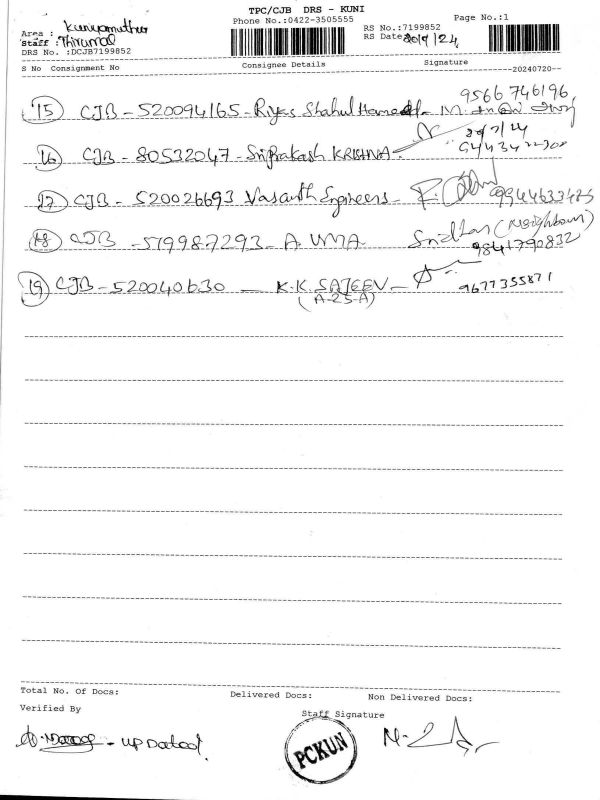 TPC/CJB DRS - KUNI
Phone No.:0422-3505555
Page No.:1
Area : Kuniyamuthur
Staff : Thirumal
DRS No. :DCJB7199852
RS No.:7199852
RS Date: 20/7/24
S No Consignment No Consignee Details Signature
--20240720--
15 CJB - 520094165 - Riyas Shahul Hameed - M.
9566 746196
16 CJB - 80532047 - SriPrakash KRISHNA.
20/7/24
17 CJB - 520026693 Vasanth Engineers -
18 CJB - 519987293 - A. UMA Sridhar (Neighbour)
9841790832
19 CJB - 520040630 - K.K. SAJEEV -
(A-25-A)
9677355871
Total No. Of Docs: Delivered Docs: Non Delivered Docs:
Verified By Staff Signature
PCKUN